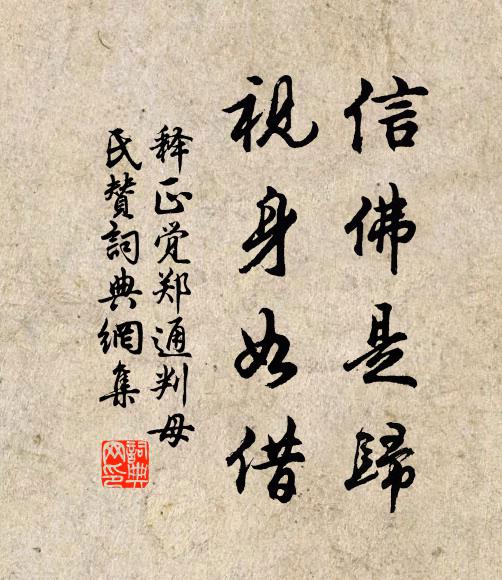 信佛是歸
視身如借
释正觉郑通判母
民赞詞典網集
詞典
网印